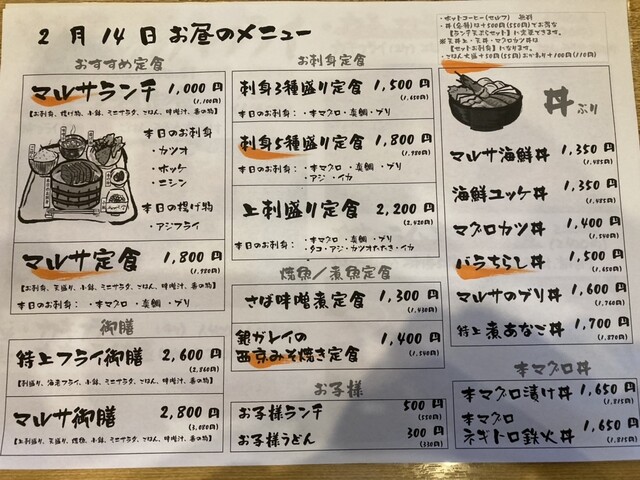 2月14日お昼のメニュー
・ホットコーヒー(セルフ) 無料
おすすめ定食
マルサランチ 1,000円
(1,100円)
【お刺身、揚げ物、小鉢、ミニサラダ、ごはん、味噌汁、香の物】
本日のお刺身
・カツオ
・ホッケ
・ニシン
本日の揚げ物
・アジフライ
マルサ定食 1,800円
(1,980円)
【お刺身、天ぷら、小鉢、ミニサラダ、ごはん、味噌汁、香の物】
本日のお刺身：・本マグロ ・真鯛 ・ブリ
御膳
特上フライ御膳 2,600円
(2,860円)
【刺盛り、海老フライ、小鉢、ミニサラダ、ごはん、味噌汁、香の物】
マルサ御膳 2,800円
(3,080円)
お刺身定食
刺身3種盛り定食 1,500円
(1,650円)
本日のお刺身：・本マグロ ・真鯛 ・ブリ
刺身5種盛り定食 1,800円
(1,980円)
本日のお刺身：・本マグロ ・真鯛 ・ブリ
・アジ ・イカ
上刺盛り定食 2,200円
(2,420円)
本日のお刺身：・本マグロ ・真鯛 ・ブリ
・タコ ・アジ ・カツオたたき ・イカ
焼魚／煮魚定食
さば味噌煮定食 1,300円
(1,430円)
銀ガレイの
西京みそ焼き定食 1,400円
(1,540円)
お子様
お子様ランチ 500円
(550円)
お子様うどん 300円
(330円)
丼ぶり
マルサ海鮮丼 1,350円
(1,485円)
海鮮ユッケ丼 1,350円
(1,485円)
マグロカツ丼 1,400円
(1,540円)
バラちらし丼 1,500円
(1,650円)
マルサのブリ丼 1,600円
(1,760円)
特上煮あなご丼 1,700円
(1,870円)
本マグロ丼
本マグロ漬け丼 1,650円
(1,815円)
本マグロ
ネギトロ鉄火丼 1,650円
(1,815円)